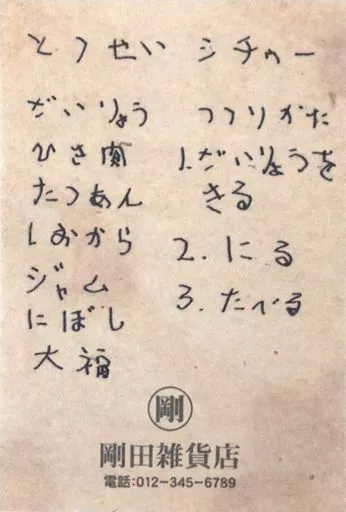 とつせい シチゥー
だいりょう
ひき肉
たつあん
しおから
ジャム
にぼし
大福
つつりかた
1.だいりょうを
きる
2.にる
3.たべる
剛
剛田雑貨店
電話:012-345-6789